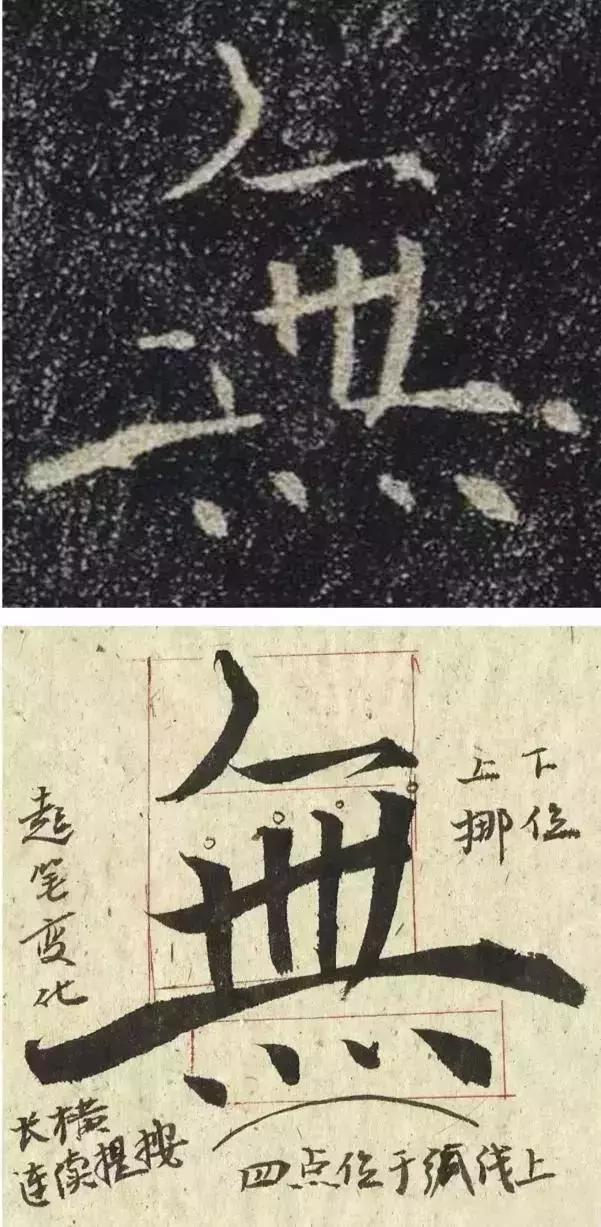 無
無
上下
挪位
起笔变化
长横
连续提按
四点位于弧线上